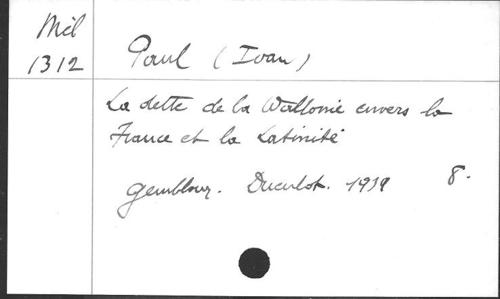 Mél
1312
Paul (Ivan)
La dette de la Wallonie envers la
France et la Latinité
Gembloux. Duculot. 1939 8°.